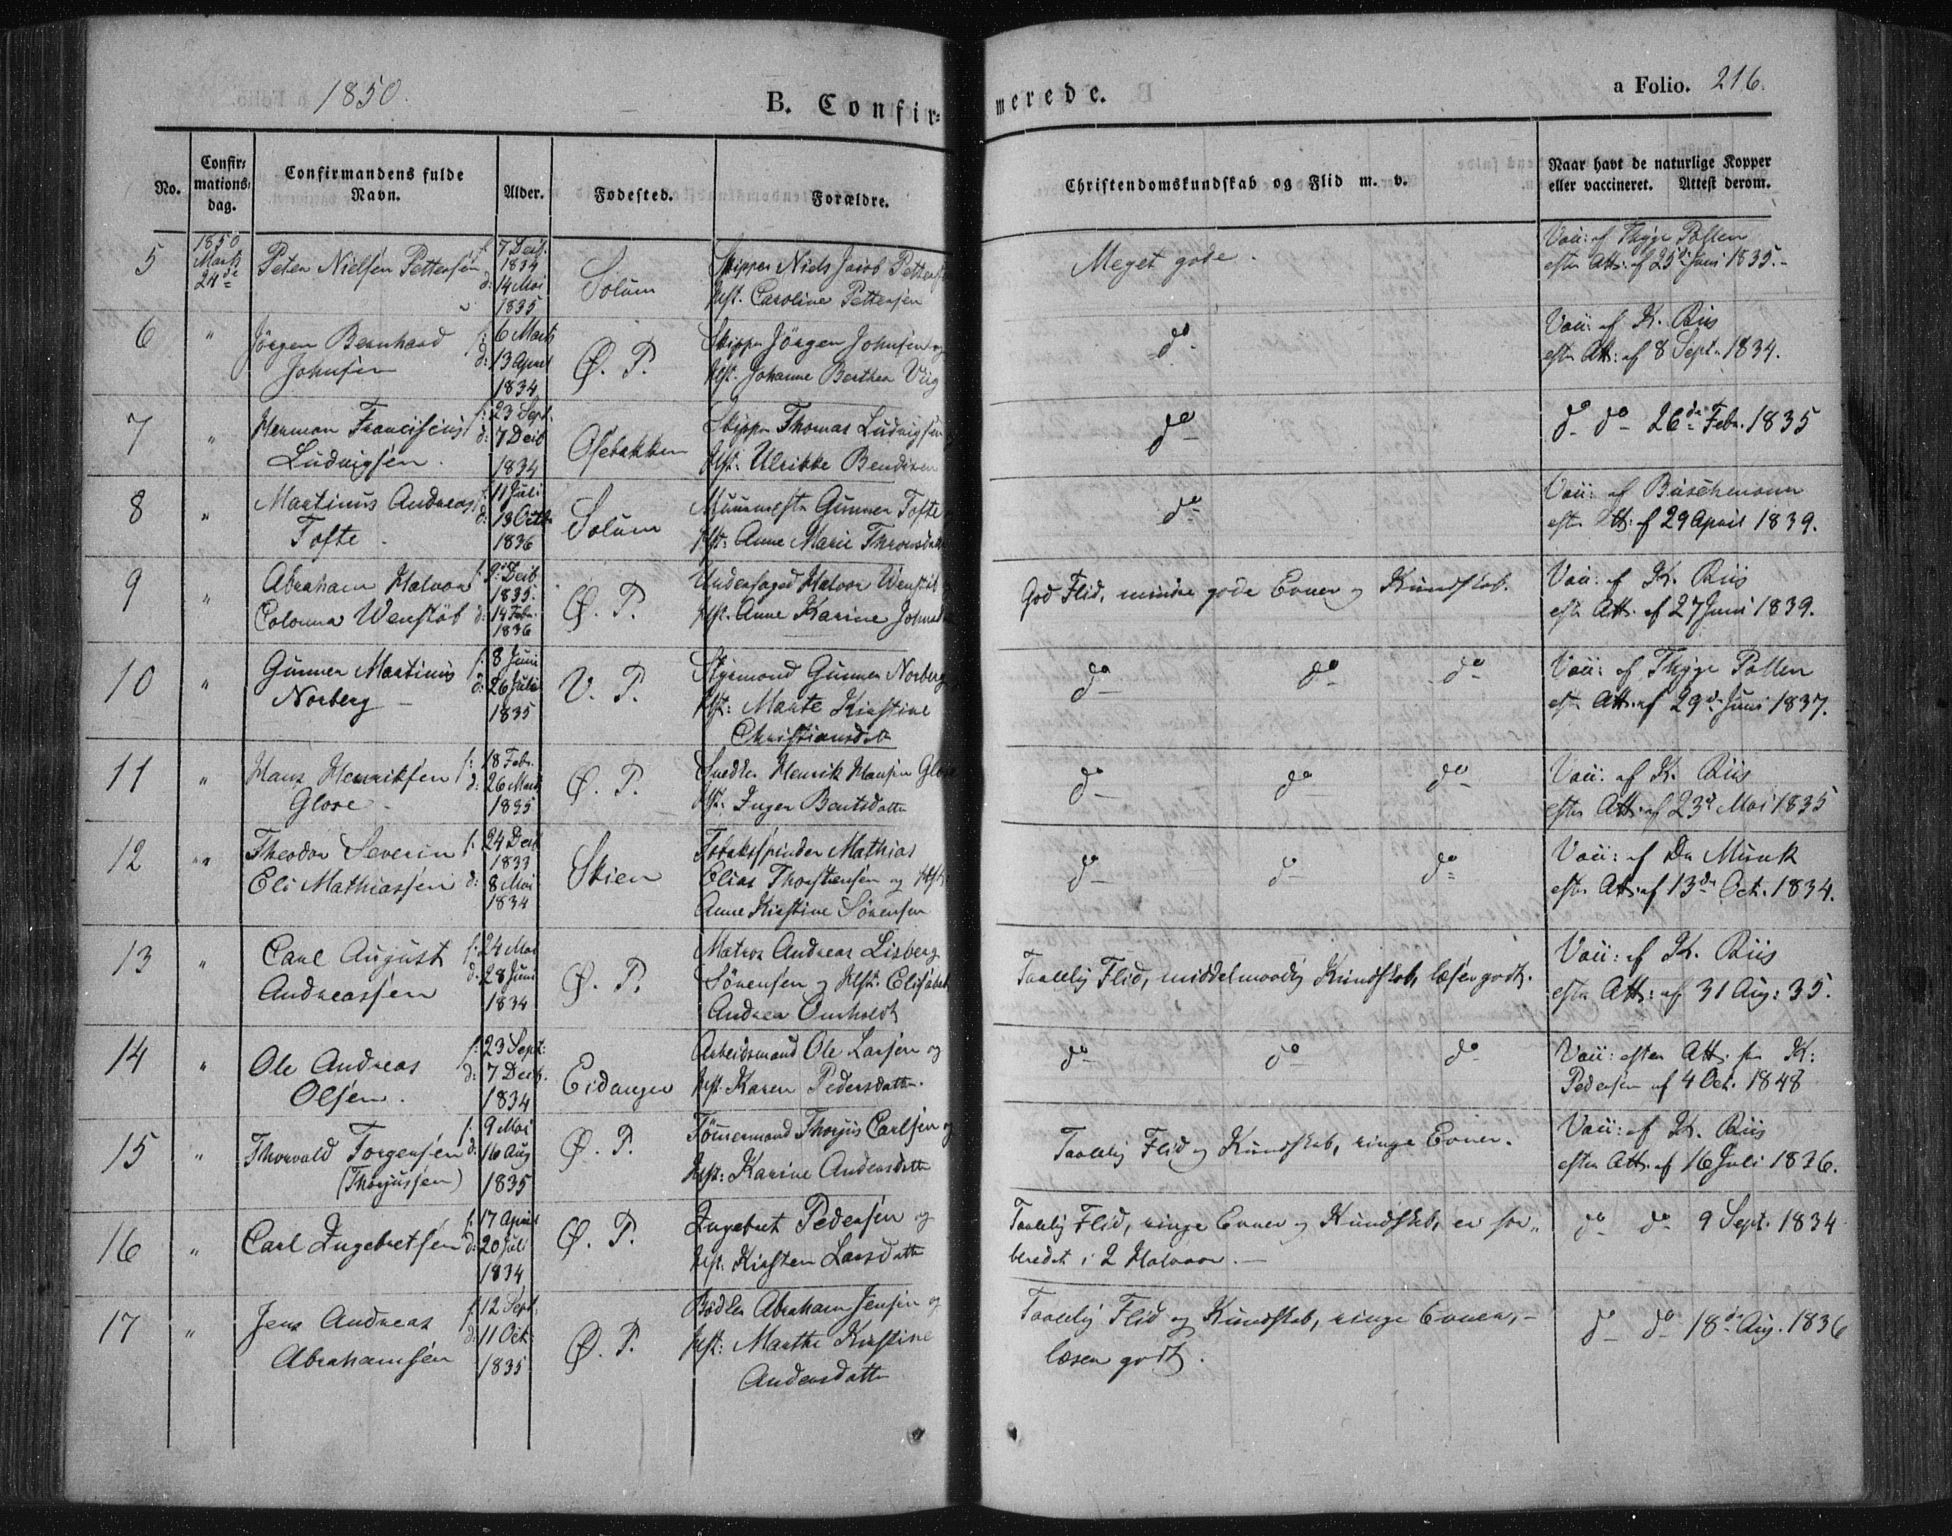 1850.
B. Confir-
merede.
a Folio. 216.
No.
Confir-
mations-
dag.
Confirmandens fulde
Navn.
Alder.
Fødested.
Forældre.
Christendomskundskab og Flid m. v.
Naar havt de naturlige Kopper
eller vaccineret. Attest derom.
5
1850
Marts
24de
Peter Nielsen Pettersen
f: 7 Decb.
1834
d: 14 Mai
1835
Solum
Skipper Niels Jacob Petters
Hst. Caroline Pettersen
Meget gode.
Vaii: af Thyge Polten
efter Att: af 25d Juni 1835.
6
"
Jörgen Bernhard
Johnsen
f: 6 Marts
d: 13 April
1834
Ø. P.
Skipper Jörgen Johnsen og
Hst. Johanne Berthea Viig
do
Vaii: af K. Riis
efter Att: af 8 Sept. 1834.
7
"
Herman Franciscus
Ludvigsen.
f: 23 Sept.
d: 7 Decb
1834
Osebakken
Skipper Thomas Ludvigsen
Hst: Ulrikke Bendixen
do
do do 26de Febr. 1835
8
"
Martinus Andreas
Tofte.
f: 11 Juli
d: 13 Octb
1836
Solum
Muurmester Gunner Tofte
Hst: Anne Marie
do
Vaii: af Buschmann
efter Att: af 29 April 1839.
9
"
Abraham Halvor
Colonna Wenstöb
f: 9 Decb
1835.
d: 14 Febr.
1836
Ø. P.
Underfoged Halvor Wenstöb
Hst. Anne Karine
God Flid, mindre gode Evner og Kundskab.
Vaii: af K. Riis
efter Att: af 27 Juni 1839.
10
"
Gunner Martinus
Norberg
f: 8 Juni
d: 26 Juli
1835
V. P.
Styrmand Gunner Norberg
Hst: Marte Kirstine
Christiansdatter
do do do
Vaii: af Thyge Polten
efter Att: af 29d Juni 1837.
11
"
Hans Henriksen
Glose
f: 18 Febr.
d: 26 Marts
1835
Ø. P.
Snedker Henrik Hansen Glose
Hst. Inger Bentsdatter
do do do
Vaii: af K. Riis
efter Att: af 23d Mai 1835
12
"
Theodor Severin
Eli Mathiassen
f: 24 Decb
1833
d: 8 Mai
1834
Skien
Tobaksspinder Mathias
Elias Thorstensen og Hst:
Anne Kirstine Sörensen
do do do
Vaii: af Dr Munk
efter Att: af 13de Oct. 1834.
13
"
Carl August
Andreassen
f: 24 Mai
d: 28 Juni
1834
Ø. P.
Matros Andreas Lisberg
Sörensen og Hst. Elisabet
Andrea Omholdt
Taalelig Flid, middelmaadig Kundskab, læser godt.
Vaii: af K. Riis
efter Att: af 31 Aug: 35.
14
"
Ole Andreas
Olsen.
f: 23 Sept:
d: 7 Decb.
1834
Eidanger
Arbeidsmand Ole Larsen og
Hst. Karen Pedersdatter.
do do do
Vaii: efter Att: fra K:
Pedersen af 4 Oct. 1848
15
"
Thorvald Torgersen
(Thorjussen)
f: 9 Mai
d: 16 Aug
1835
Ø. P.
Tömmermand Thorjus Carlsen og
Hst: Karine Andersdatter
Taalelig Flid og Kundskab, ringe Evner.
Vaii: af K. Riis
efter Att: af 16 Juli 1836.
16
"
Carl Ingebretsen
f: 17 April
d: 20 Juli
1834
Ø. P.
Ingebret Pedersen og
Hst. Kirsten Larsdatter
Taalelig Flid, ringe Evner og Kundskab, er for-
beredet i 2 Halvaar.
do do 9 Sept. 1834
17
"
Jens Andreas
Abrahamsen
f: 12 Sept.
d: 11 Oct:
1835
Ø. P.
Bödker Abraham Jensen og
Hst: Marthe Kirstine
Andersdatter
Taalelig Flid og Kundskab, ringe Evner,
læser godt.
do do 18d Aug. 1836